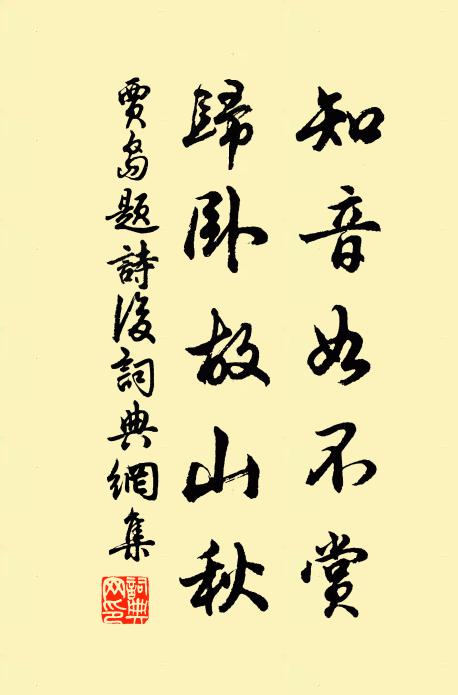 知音如不賞
歸臥故山秋
賈島題詩後詞典網集
詞典網印